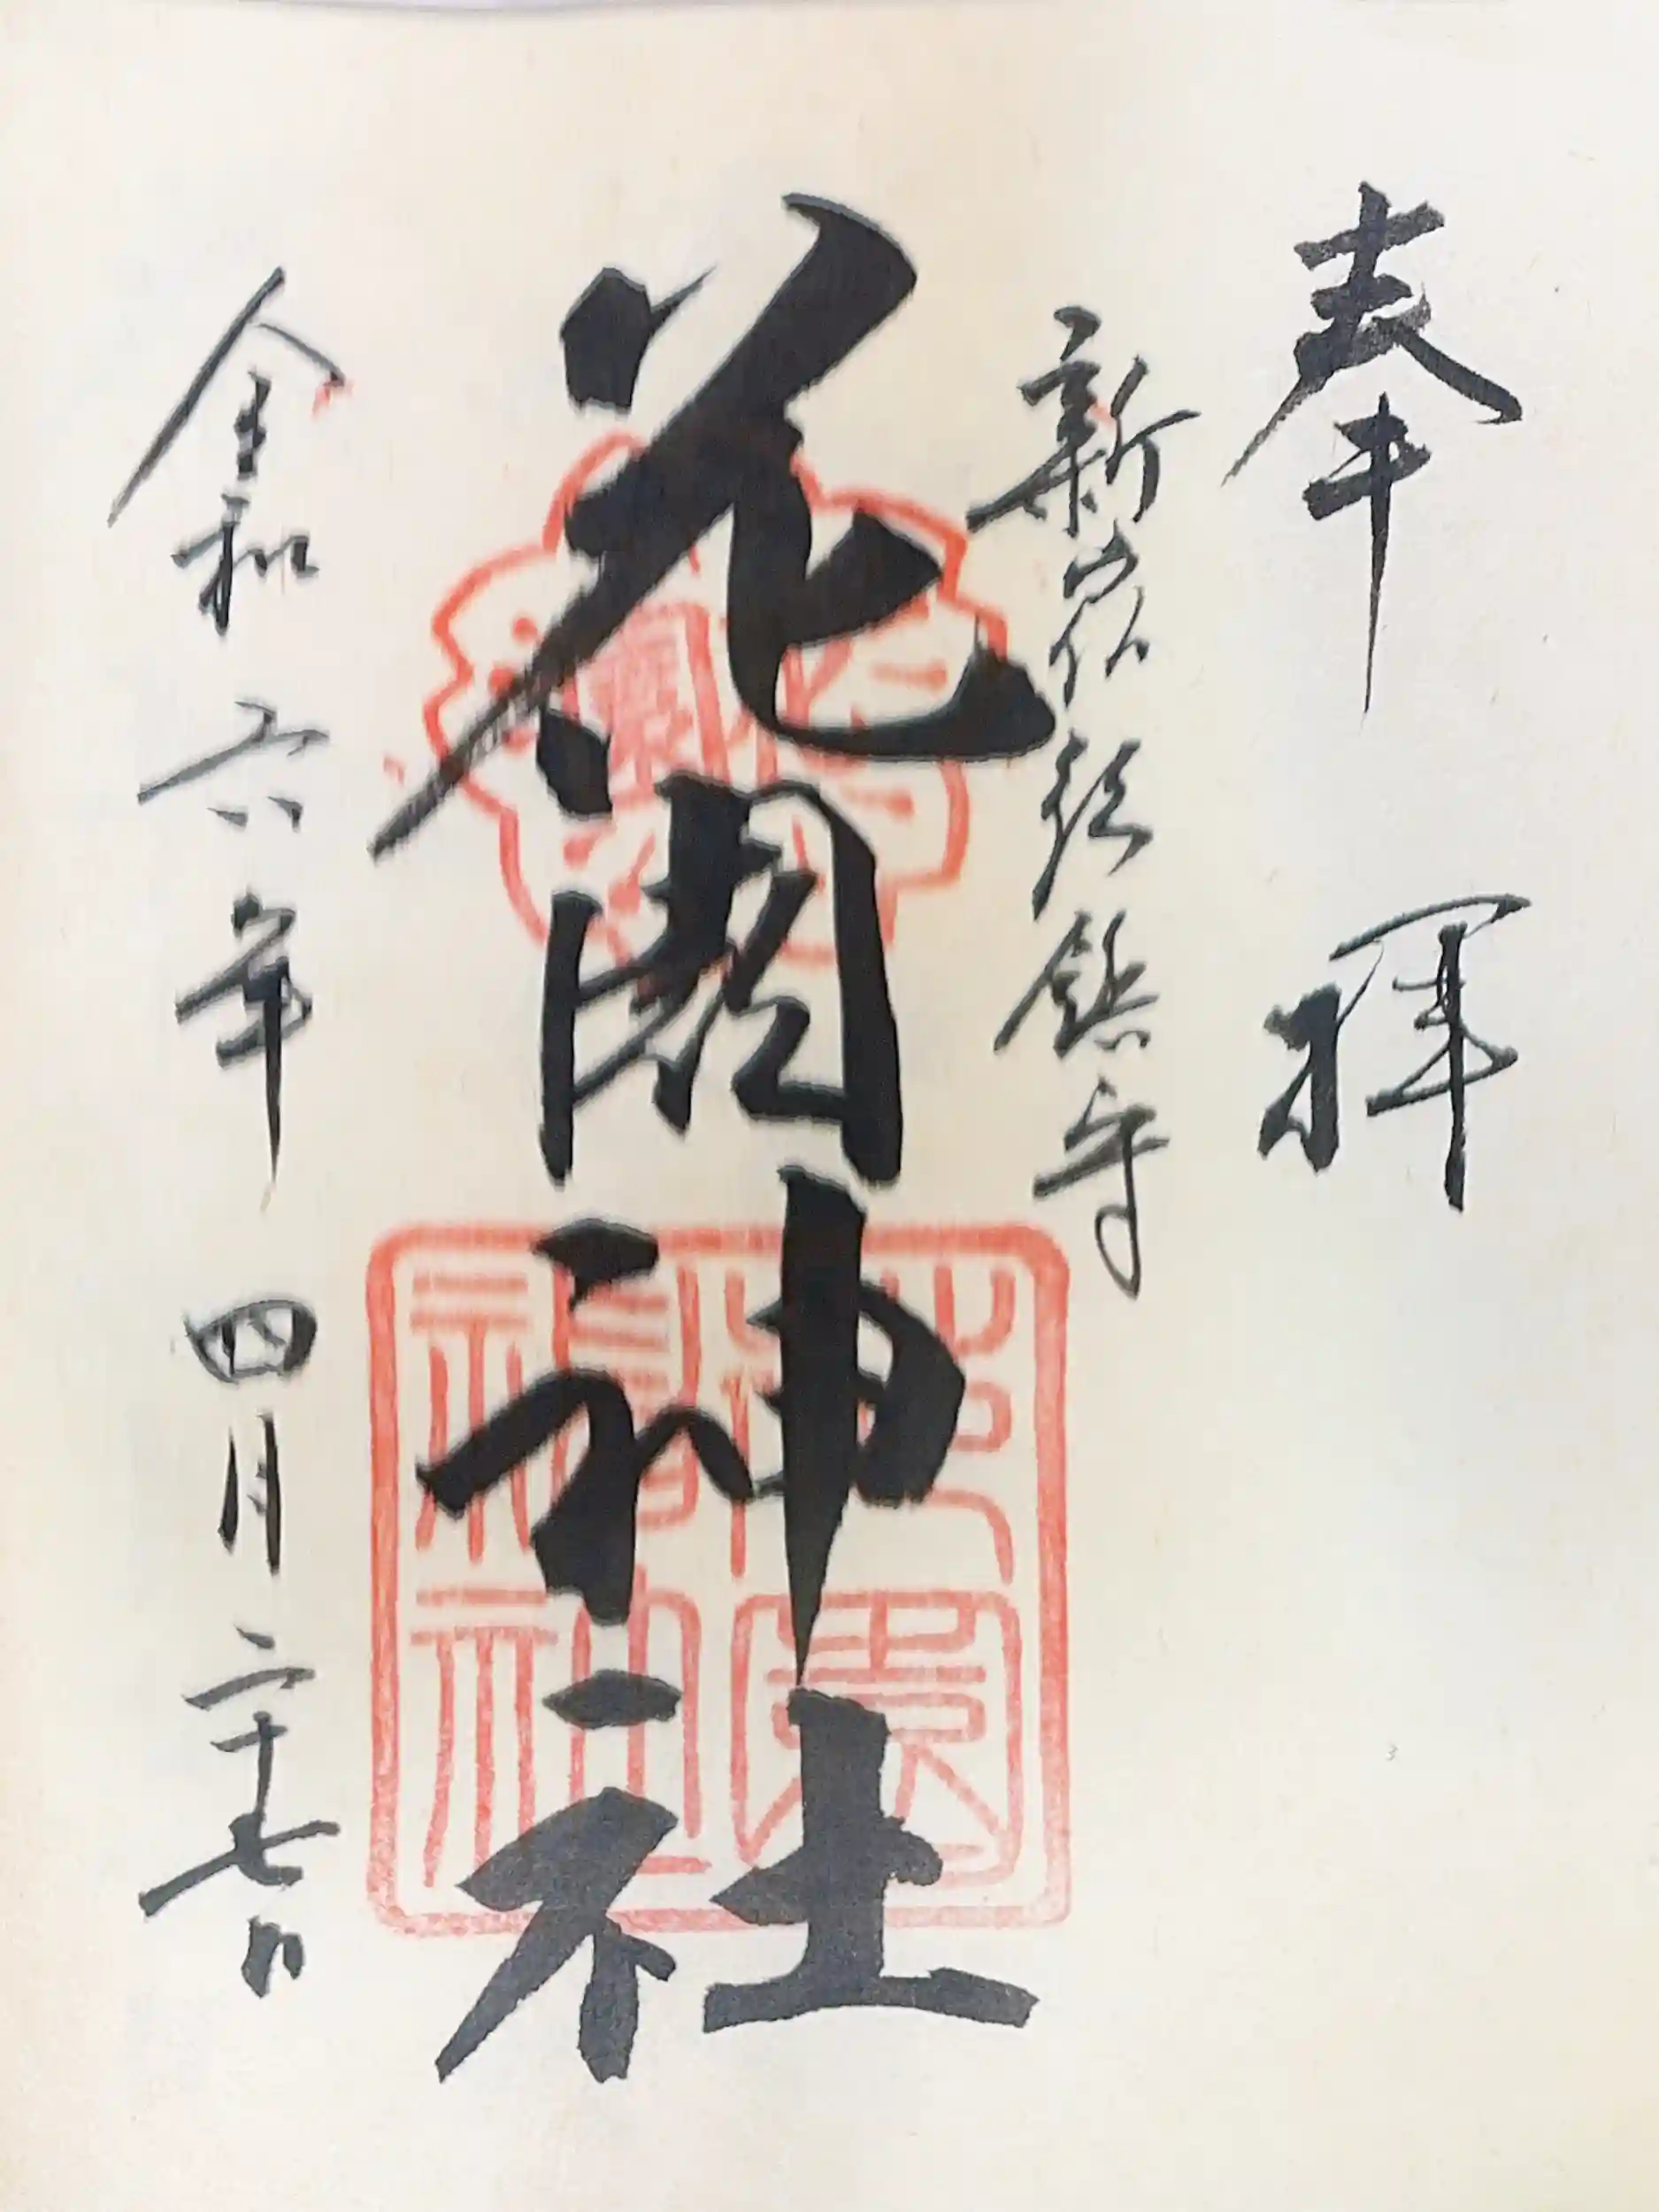 奉拝
新宿総鎮守
花園神社
令和六年四月二十七日
花園稲荷神社